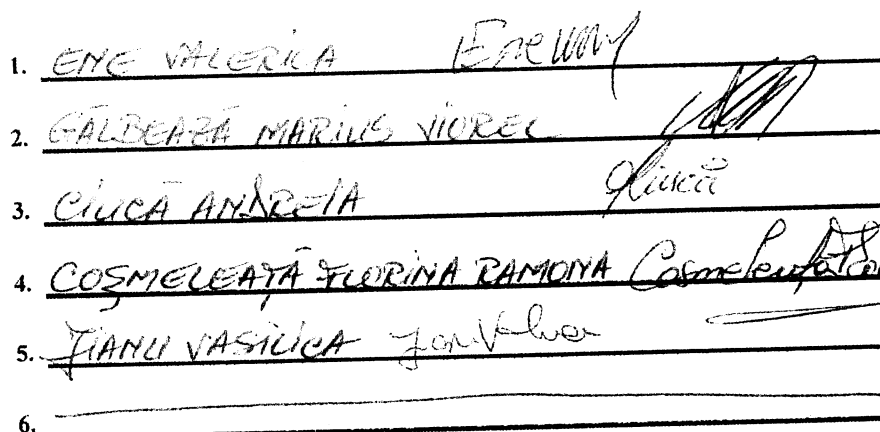 1. ENE VALERICA Ene
2. GĂLBEAZĂ MARIUS VIOREL
3. CIUCĂ ANDREIA Ciucă
4. COȘMELEAȚĂ FLORINA RAMONA Cosmeleață
5. ȚIANU VASILICA
6.